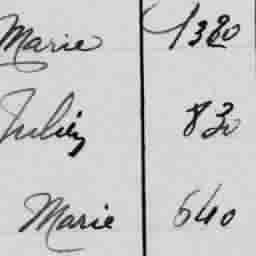 Marie 1380
Julien 830
Marie 640